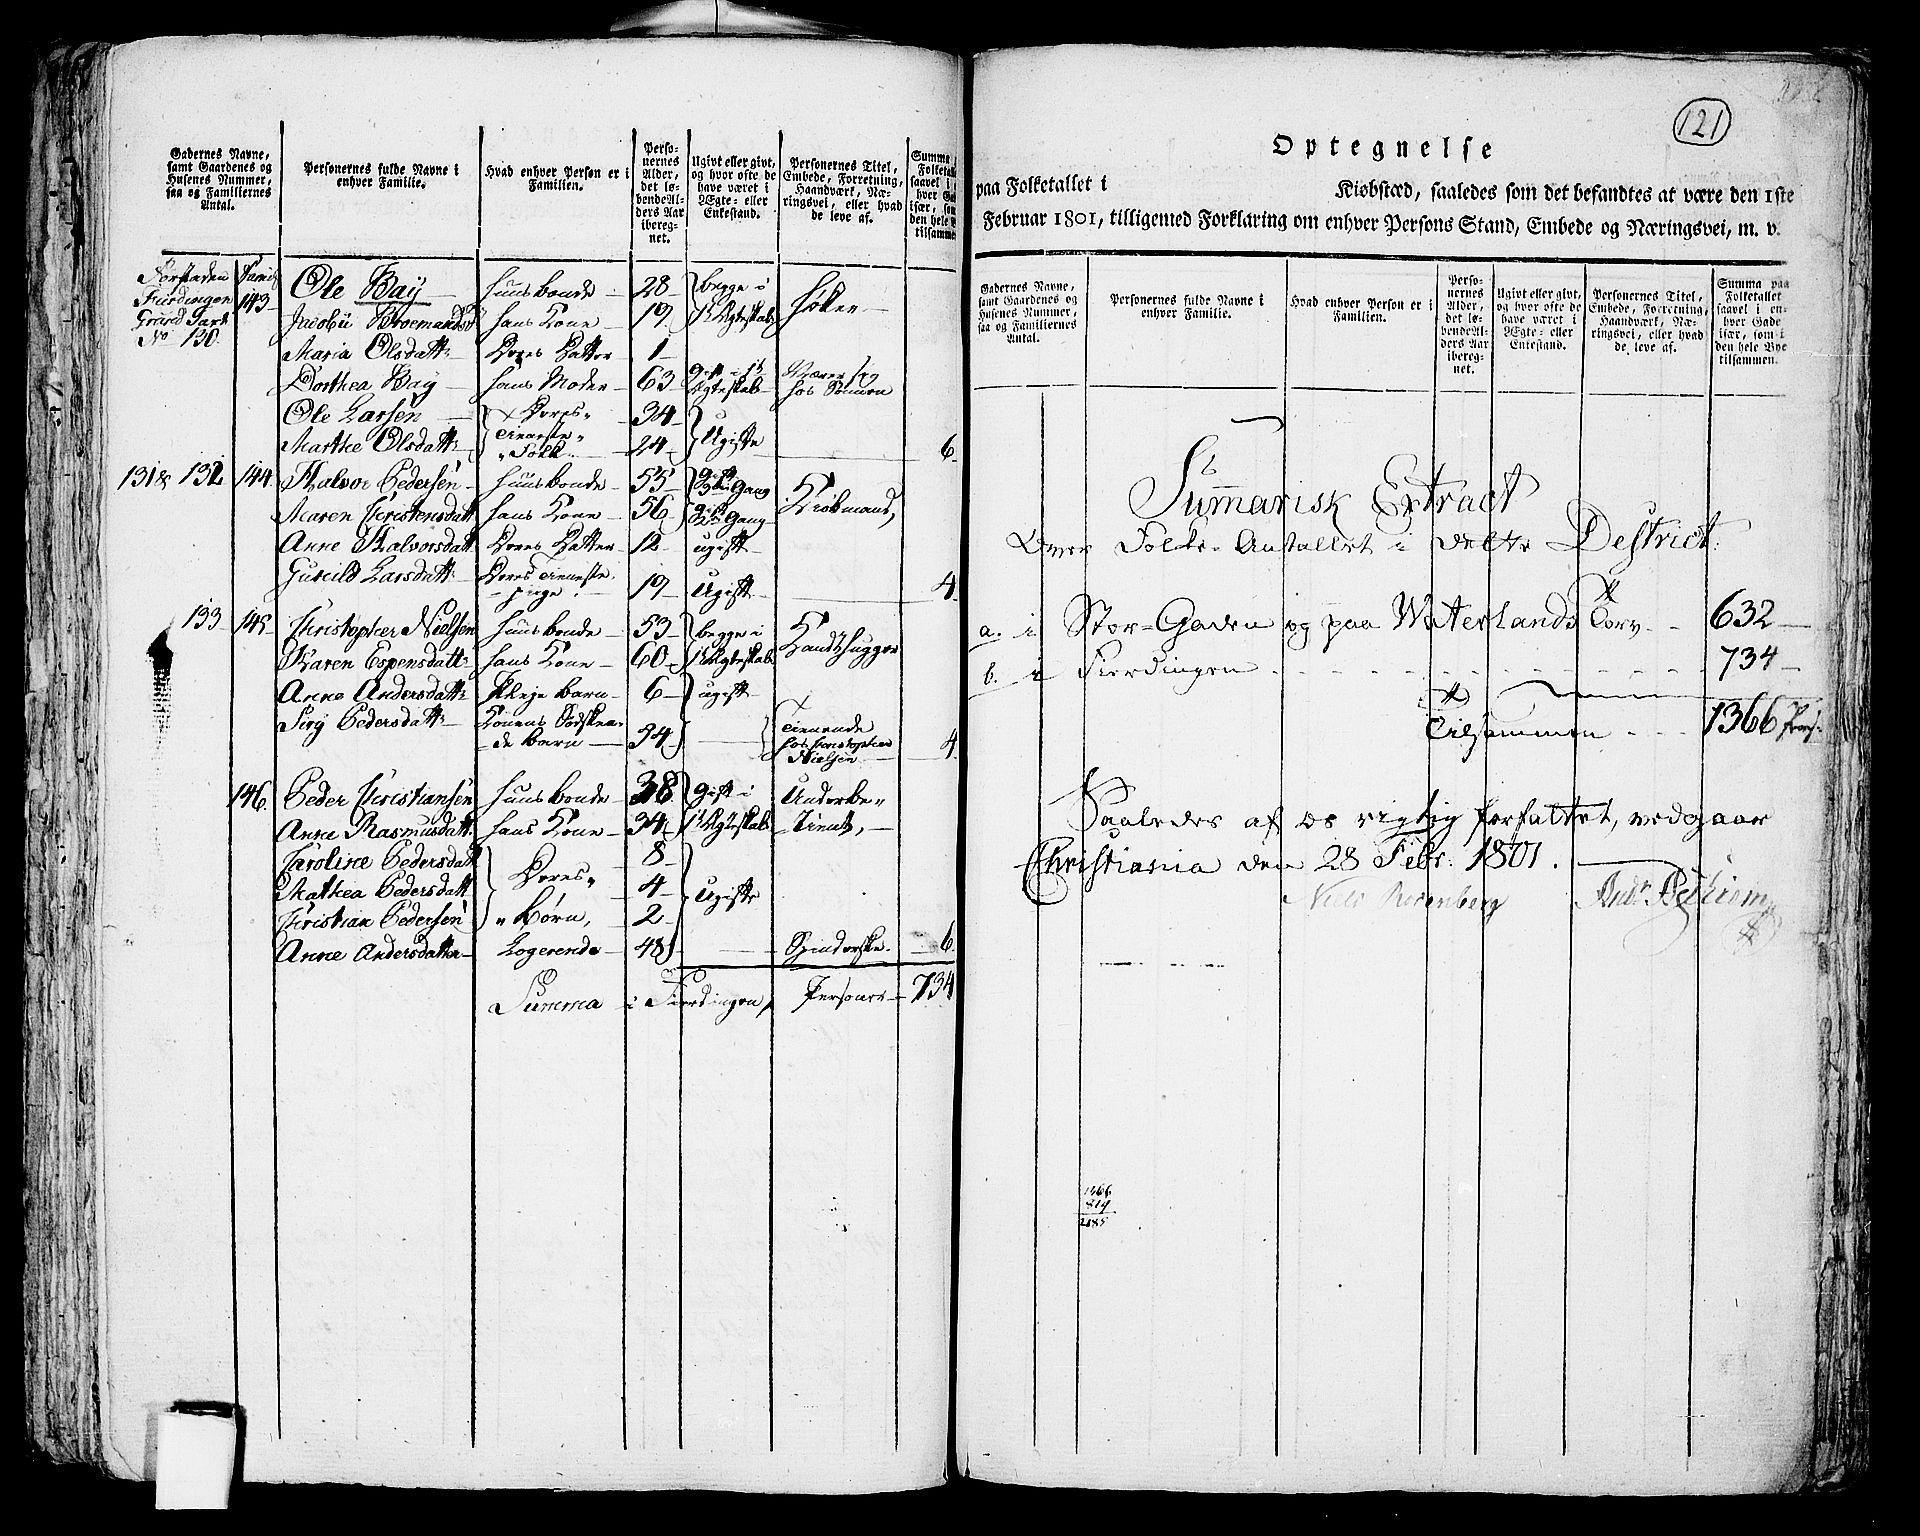 Gadernes Navne, samt Gaardenes og Husenes Nummer, saa og Familiernes Antal.
Personernes fulde Navne i enhver Familie.
Hvad enhver Person er i Familien.
Personernes Alder, det løbende Alders Aar iberegnet.
Ugivt eller givt, og hvor ofte de have været i Ægte- eller Enkestand.
Personernes Titel, Embede, Forretning, Haandværk, Næringsvei, eller hvad de leve af.
Summa
Forstaden Fierdingen Grund Tax No 130 143 Ole Bay Huusbonde 28 begge i 1t Ægteskab Høker
hans Kone 19
Maria Olsdattr Deres Datter 1
Dorthea Bay hans Moder 63 Gift i 1t Ægteskab Nærer sig hos Sønnen
Ole Larsen Deres tieneste Folk 34 Ugifte
Marthe Olsdattr 24 6
131 & 132 144 Halvor Pedersen Huusbonde 55 gift Gang Kiøbmand,
Maren Christensdatt hans Kone 56 gift Gang
Anne Halvorsdatt Deres Datter 12 ugift
Gunild Larsdattr Deres tieneste pige 19 Ugift 4
133 145 Christopher Nielsen Huusbonde 53 begge i 1t Ægteskab
Karen Espensdattr hans Kone 60
Anne Andersdattr Pleje barn 6 ugift
Siri Pedersdattr Konens Sødskende barn 34 tienende hos Christopher Nielsen 4
146 Peder Christiansen Huusbonde 38 gift i 1t Ægteskab Underbetient,
Anne Rasmusdatt hans Kone 34
Caroline Pedersdatt Deres Børn, 8 Ugifte
Mathea Pedersdatt 4
Christian Pedersen 2
Anne Andersdatter Logerende 48 Spinderske 6
Summa i Fierdingen, Personer 734
121
Optegnelse
paa Folketallet i Kiøbstæd, saaledes som det befandtes at være den 1ste
Februar 1801, tilligemed Forklaring om enhver Persons Stand, Embede og Næringsvei, m. v.
Gadernes Navne, samt Gaardenes og Husenes Nummer, saa og Familiernes Antal.
Personernes fulde Navne i enhver Familie.
Hvad enhver Person er i Familien.
Personernes Alder, det løbende Alders Aar iberegnet.
Ugivt eller givt, og hvor ofte de have været i Ægte- eller Enkestand.
Personernes Titel, Embede, Forretning, Haandværk, Næringsvei, eller hvad de leve af.
Summa paa Folketallet saavel i enhver Gade især, som i den hele Bye tilsammen.
Summarisk Extract
Over Folke-Antallet i dette District.
a. i Stor-Gaden og paa Waterlands Torv 632
b. i Fierdingen 734
Tilsammen 1366 Pers.
Saaledes af os rigtig forfattet, vedgaar
Christiania den 28 Febr. 1801.
Niels Rosenberg
1366
819
2185